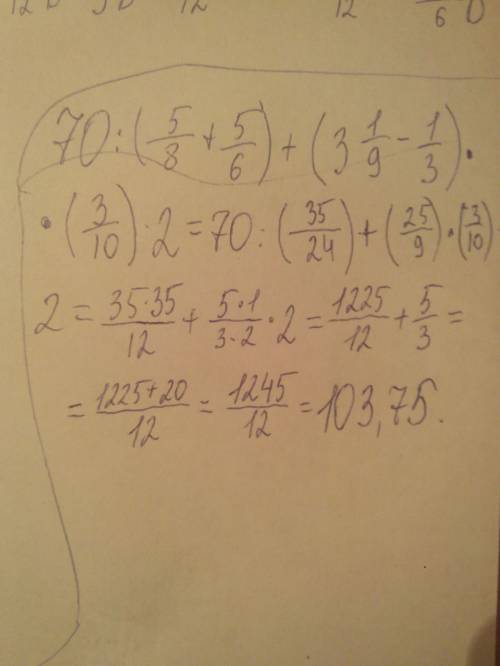 12
12
6
70:(5/8+5/6)+(3 1/9-1/3)·
·(3/10)·2=70:(35/24)+(25/9)·(3/10)·
2=35·35/12+5·1/3·2·2=1225/12+5/3=
=1225+20/12=1245/12=103,75.